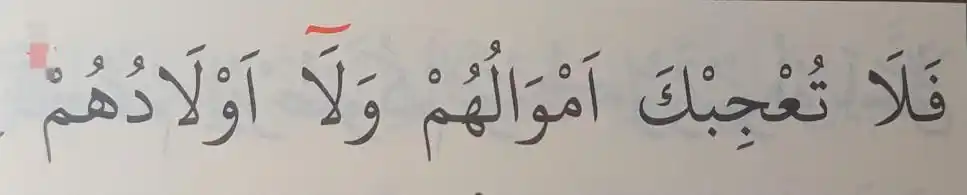 فَلَا تُعْجِبْكَ اَمْوَالُهُمْ وَلَآ اَوْلَادُهُمْ